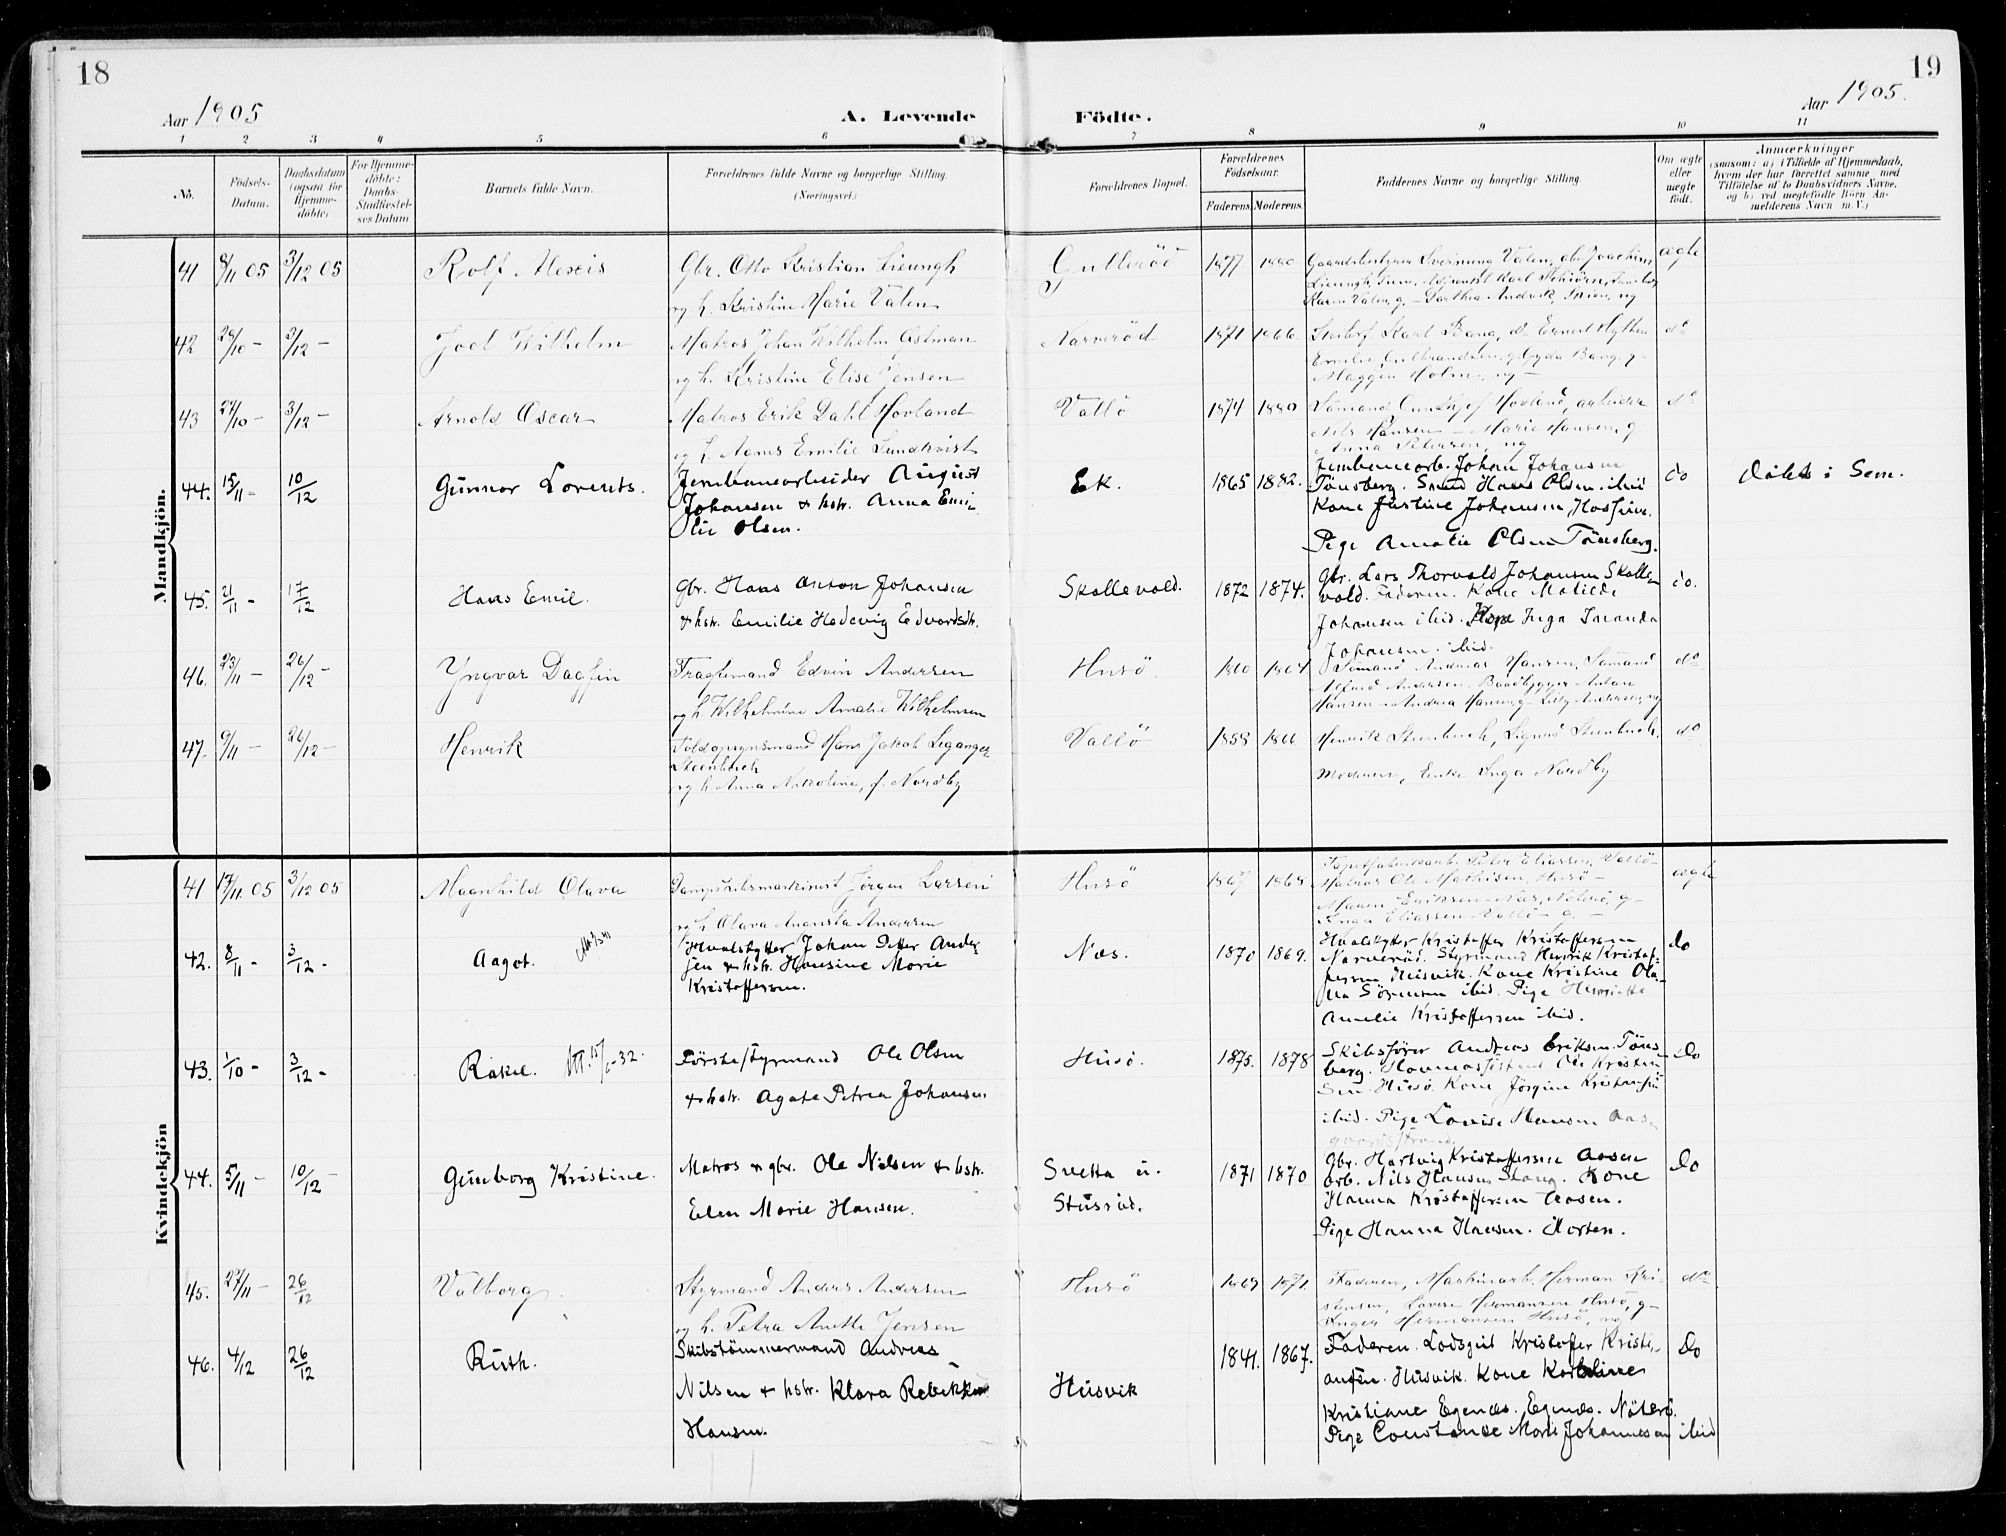 18
19
Aar 1905
A. Levende
Födte.
Aar 1905.
1 2 3 4 5 6 7 8 9 10 11
No.
Födsels-
Datum.
Daabsdatum
(ogsaa for
Hjemme-
döbte)
For Hjemme-
döbte:
Daabs-
Stadfæstel-
ses Datum
Barnets fulde Navn.
Forældrenes fulde Navne og borgerlige Stilling.
(Næringsvei)
Forældrenes Bopæl.
Forældrenes
Födselsaar.
Faderens Moderens.
Faddernes Navne og borgerlige Stilling.
Om ægte
eller
uægte
födt.
Anmærkninger
(saasom: a) i Tilfælde af Hjemmedaab,
hvem der har forrettet samme, med
Tilföielse af to Daabsvidners Navne,
og b) ved uægtefödte Börn An-
melderens Navn m. V.)
Mandkjön.
41 8/11 05 3/12 05 Rolf Alexis
Gbr. Otto Kristian Lieungh
og h. Kristine Marie Valen
Gulleröd 1877 1880
ægte
42 28/10 - 3/12 - Joel Wilhelm
Matros Johan Wilhelm Østman
og h. Kristine Elise Jensen
Narveröd 1871 1866
Maggen Holm, ug -
do
43 24/10 - 3/12 - Arnold Oscar
Matros Erik Dahl Hovland
og h. Agnes Emilie Lundkvist
Vallö 1874 1880
Nils Hansen - Marie Hansen, g
Anna Petersen, ug
do
44. 15/11 - 10/12 Gunnar Lorents.
Jernbanearbeider August
Johansen & hstr. Anna Emi-
lie Olsen.
Ek. 1865 1882.
Jernbanearb. Johan Johansen
Tönsberg. Smed Hans Olsen. ibid
Kone Justine Johansen,
Pige Amalie Olsen Tönsberg.
do
Döbt i Sem.
45. 21/11 - 17/12 Hans Emil.
Gbr. Hans Anton Johansen
& hstr. Emilie Hedevig Edvardsdtr.
Skallevold. 1872 1874.
Gbr. Lars Thorvald Johansen Skalle-
vold. Faderen. Kone Matilde
Johansen ibid. Pige Inga
Johansen. ibid.
do.
46. 23/11 - 26/12 - Yngvar Dagfin
Fragtemand Edvin Andersen
og h. Wilhelmine Amalie Wilhelmsen
Husö. 1860 1864
Sömand Andreas Hansen, Sömand
Alfred Andersen, Baadbygger Anton
Hansen - Andrea Hansen, g - Lilly Andersen, ug
do
47. 9/11 - 26/12 - Henrik
Toldopsynsmand Hans Jakob Leganger
Steenbuch
og h. Anna Nikoline, f. Nordby
Vallö 1858 1866
Henrik Steenbuch, Sigurd Steenbuch
Moderen, Enke Inga Nordby
do
Kvindekjön
41 17/11 05 3/12 05 Magnhild Olava
Dampskibsmaskinist Jörgen Larsen
og h. Olava Augusta Andersen
Husö 1867 1868
Matros Ole Mathisen, Husö -
Maren Eriksen - Næs, Nöterö, g -
Inga Eliassen - Vallö - g. -
ægte
42. 8/11 - 3/12 - Aagot.
Hvalskytter Johan Petter Ander-
sen & hstr. Hansine Marie
Kristoffersen.
Næs. 1870 1869.
Hvalskytter Kristoffer Kristoffersen
Narveröd. Styrmand Henrik Kristof-
fersen Husvik. Kone Kristine Ola-
va Sörensen ibid. Pige Henriette
Amelie Kristoffersen ibid.
do
43. 1/10 - 3/12 - Rakel. Att. 15/6-32.
Förstestyrmand Ole Olsen
& hstr. Agate Petrea Johansen.
Husö. 1875. 1878
Skibsförer Andreas Eriksen. Töns-
berg. Havneassistent Ole Kristen-
sen. Husö Kone Jörgine Kristensen
ibid. Pige Lovise Hansen Aas-
gaardsstrand.
do
44. 5/11 - 10/12 - Gunborg Kristine.
Matros & gbr. Ole Nilsen & hstr.
Elen Marie Hansen.
Svetta u.
Stusröd.
1871 1870
Gbr. Hartvig Kristoffersen Aasen
Arb. Nils Hansen Slang. Kone
Hanna Kristoffersen Aasen.
Pige Hanna Hansen. Horten.
do
45. 27/11 - 26/12 Valborg.
Styrmand Anders Andersen
og h. Petra Anette Jensen
Husö 1869 1871.
Faderen, Maskinarb. Herman Kri-
stensen, Lovise Hermansen Husö, g -
Inger Hermansen Husö, ug
do
46. 4/12 26/12 Ruth.
Skibstömmermand Andreas
Nilsen & hstr. Klara Rebekka
Hansen.
Husvik
1841. 1867.
Faderen. Lodsgut Kristoffer Kristi-
ansen. Husvik. Kone
Kristiane Egenæs. Egenæs. Nöterö.
Pige Constanse Marie Johannesen ibid
do